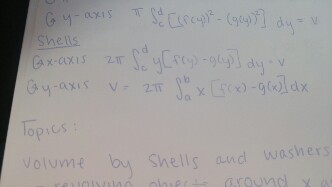 @ y-axis π ∫_c^d [(f(y)² - (g(y)²] dy = v
Shells
@ x-axis 2π ∫_c^d y[f(y) - g(y)] dy = v
@ y-axis v = 2π ∫_a^b x [f(x) - g(x)] dx
Topics:
Volume by Shells and washers
revolving objects around x